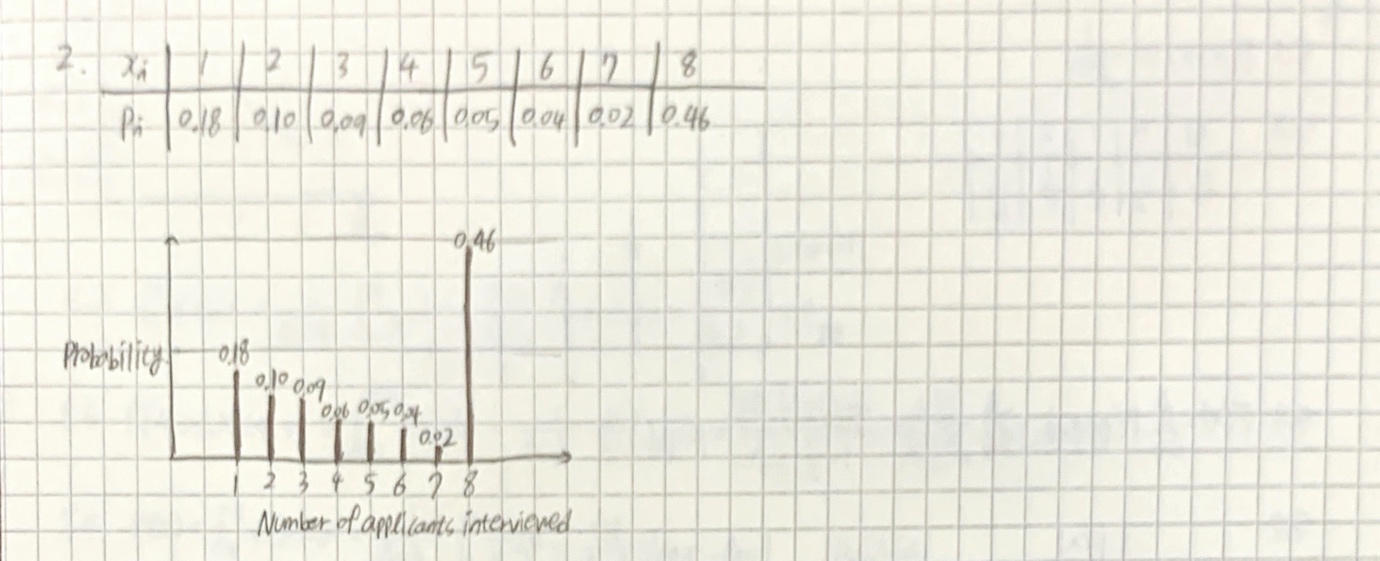 2. xᵢ | 1 | 2 | 3 | 4 | 5 | 6 | 7 | 8
Pᵢ | 0.18 | 0.10 | 0.09 | 0.06 | 0.05 | 0.04 | 0.02 | 0.46
0.46
Probability 0.18
0.10 0.09
0.06 0.05 0.04
0.02
1 2 3 4 5 6 7 8
Number of applicants interviewed